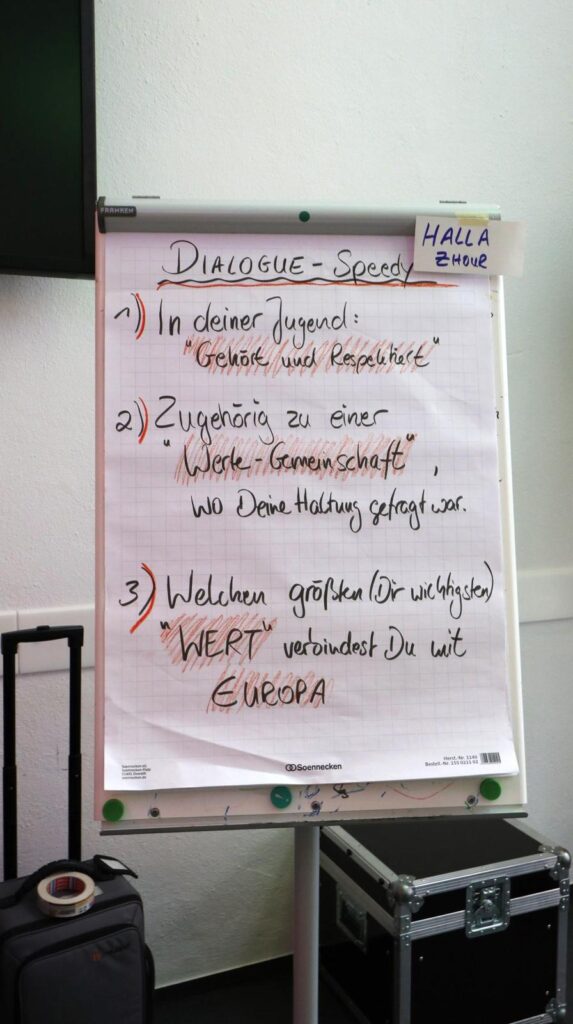 FRANKEN
HALLA
ZHOUR
DIALOGUE - Speedy
1) In deiner Jugend:
"Gehört und Respektiert"
2) Zugehörig zu einer
"Werte-Gemeinschaft",
wo Deine Haltung gefragt war.
3) Welchen größten (Dir wichtigsten)
"WERT" verbindest Du mit
EUROPA
Soennecken eG
Soennecken-Platz
51491 Overath
soennecken.de
Soennecken
Herst.-Nr. 1140